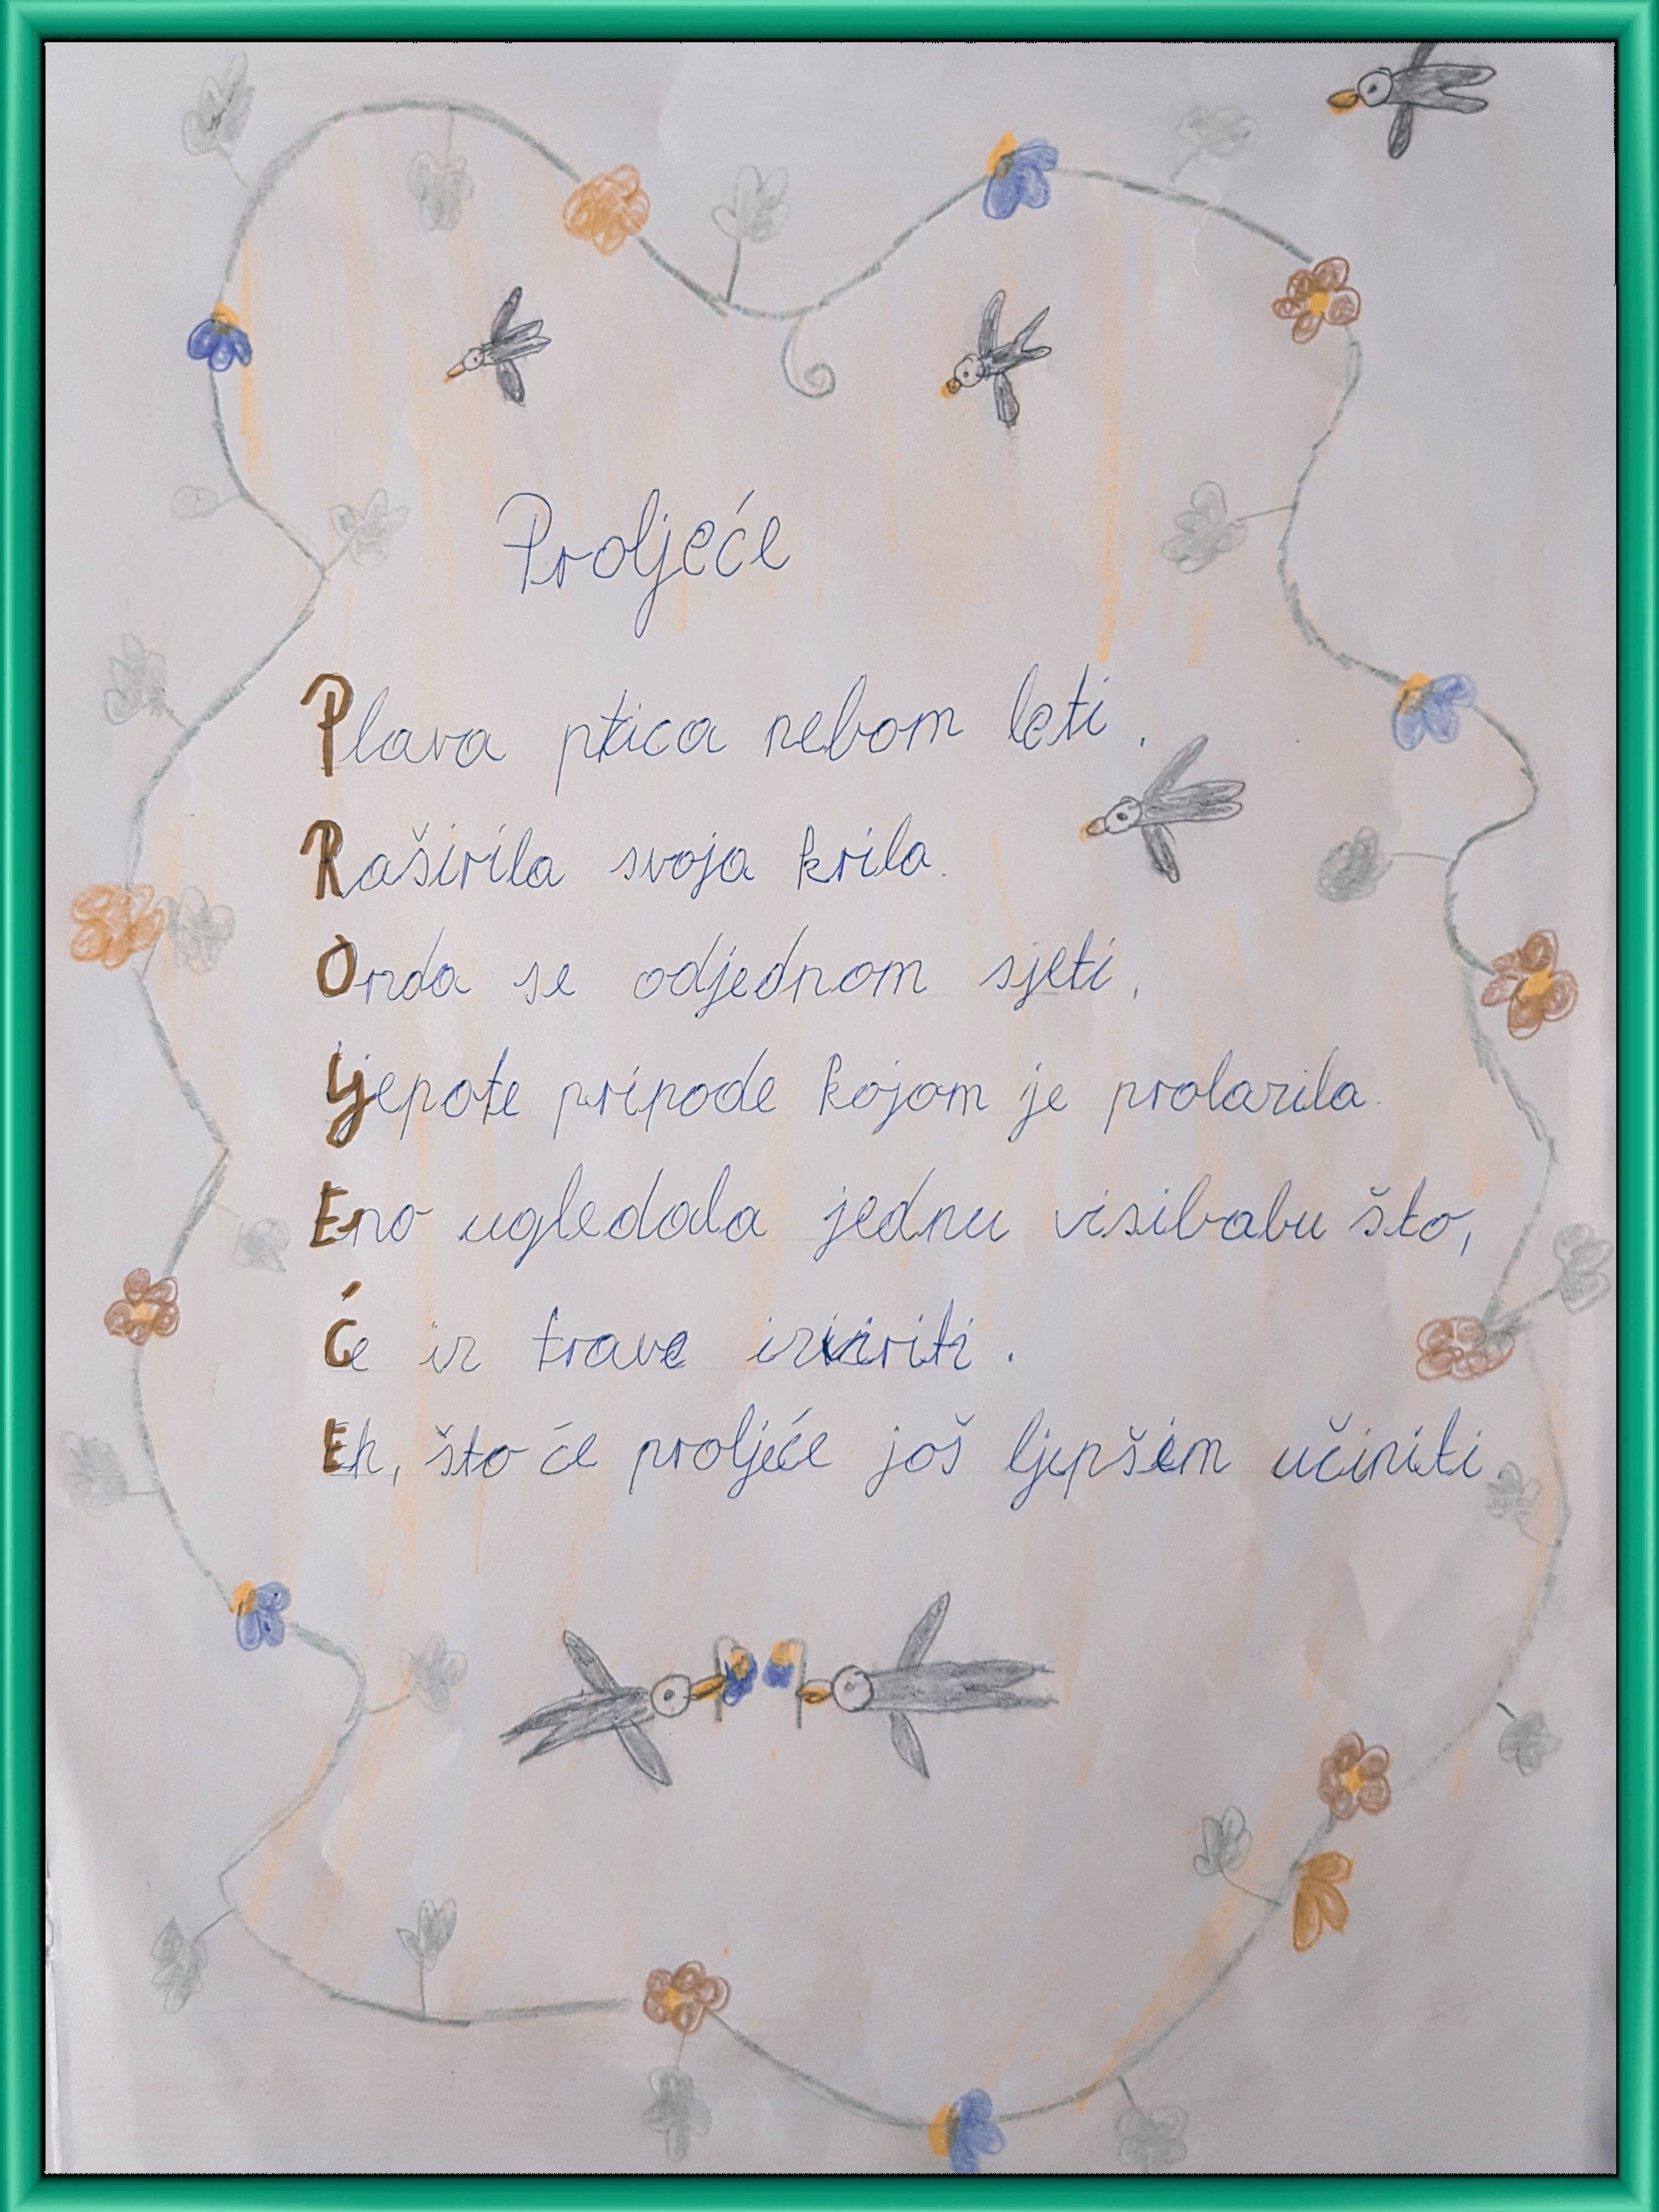 Proljeće
Plava ptica nebom leti.
Raširila svoja krila.
Onda se odjednom sjeti,
Ljepote prirode kojom je prolazila.
Eno ugledala jednu visibabu što,
Će iz trave izviriti.
Eh, što će proljeće još ljepšim učiniti.